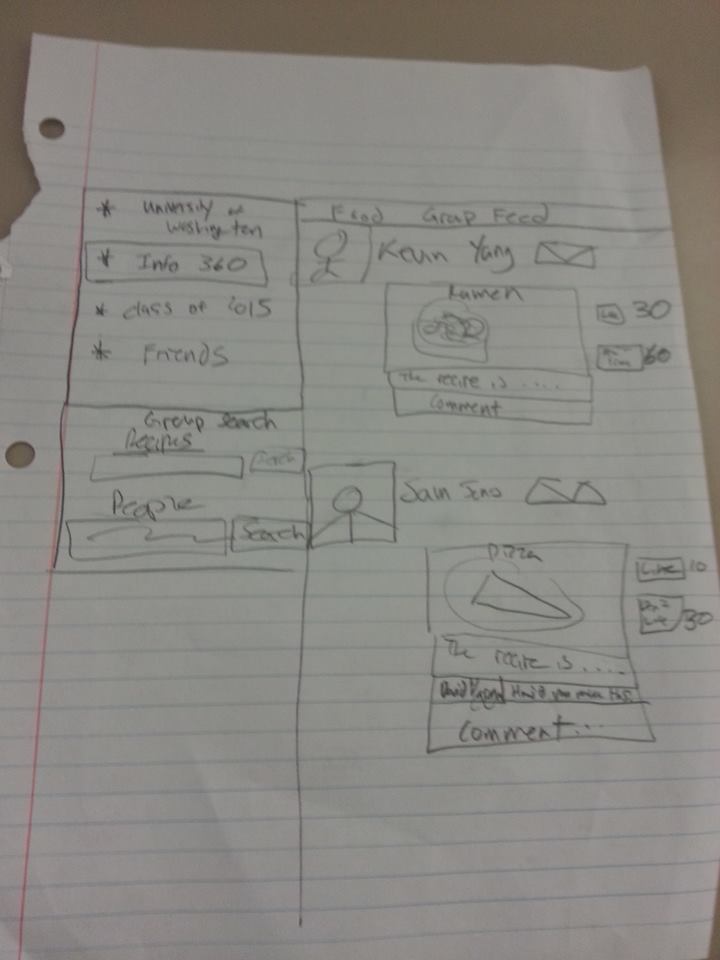 * University of
Washington
* Info 360
* class of 2015
* Friends
Group Search
Recipes
Search
People
Search
Food Group Feed
Kevin Yang
Ramen
30
60
The recire is .....
Comment
Sam
Pizza
Like 10
30
The recire is ....
David How'd you make this
Comment...